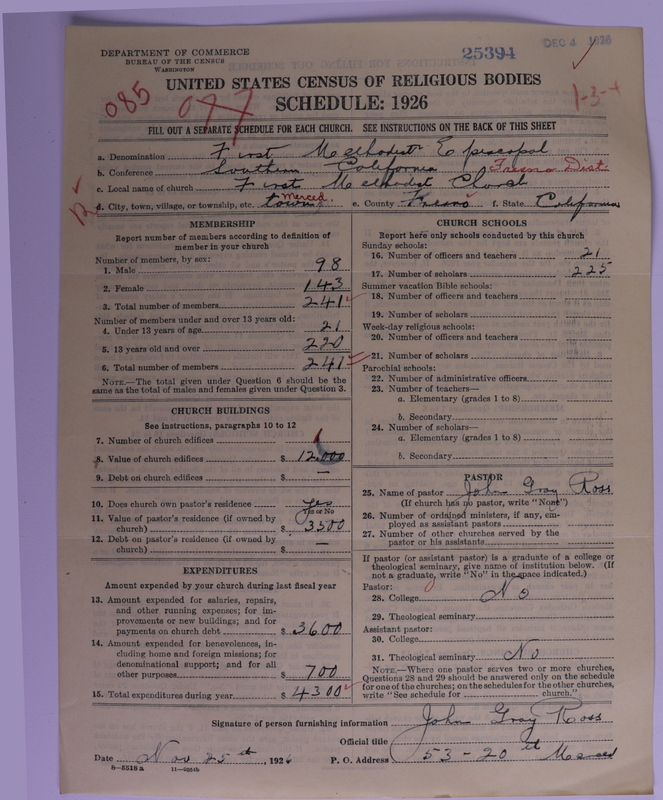 DEPARTMENT OF COMMERCE
BUREAU OF THE CENSUS
WASHINGTON
25394
DEC 4 1926
UNITED STATES CENSUS OF RELIGIOUS BODIES
SCHEDULE: 1926
085
077
1-3-4
FILL OUT A SEPARATE SCHEDULE FOR EACH CHURCH. SEE INSTRUCTIONS ON THE BACK OF THIS SHEET
a. Denomination First Methodist Episcopal
b. Conference Southern California Fresno Dist.
c. Local name of church First Methodist Church
d. City, town, village, or township, etc. town Merced e. County Fresno f. State California
MEMBERSHIP
Report number of members according to definition of
member in your church
Number of members, by sex:
1. Male 98
2. Female 143
3. Total number of members 241
Number of members under and over 13 years old:
4. Under 13 years of age 21
5. 13 years old and over 220
6. Total number of members 241
NOTE.—The total given under Question 6 should be the
same as the total of males and females given under Question 3.
CHURCH BUILDINGS
See instructions, paragraphs 10 to 12
7. Number of church edifices 1
8. Value of church edifices $ 12,000
9. Debt on church edifices $ —
10. Does church own pastor's residence Yes
Yes or No
11. Value of pastor's residence (if owned by
church) $ 3500
12. Debt on pastor's residence (if owned by
church) $ —
EXPENDITURES
Amount expended by your church during last fiscal year
13. Amount expended for salaries, repairs,
and other running expenses; for im-
provements or new buildings; and for
payments on church debt $ 3600
14. Amount expended for benevolences, in-
cluding home and foreign missions; for
denominational support; and for all
other purposes $ 700
15. Total expenditures during year $ 4300
CHURCH SCHOOLS
Report here only schools conducted by this church
Sunday schools:
16. Number of officers and teachers 21
17. Number of scholars 225
Summer vacation Bible schools:
18. Number of officers and teachers
19. Number of scholars
Week-day religious schools:
20. Number of officers and teachers
21. Number of scholars
Parochial schools:
22. Number of administrative officers
23. Number of teachers—
a. Elementary (grades 1 to 8)
b. Secondary
24. Number of scholars—
a. Elementary (grades 1 to 8)
b. Secondary
PASTOR
25. Name of pastor John Gray Ross
(If church has no pastor, write "None")
26. Number of ordained ministers, if any, em-
ployed as assistant pastors
27. Number of other churches served by the
pastor or his assistants
If pastor (or assistant pastor) is a graduate of a college or
theological seminary, give name of institution below. (If
not a graduate, write "No" in the space indicated.)
Pastor:
28. College No
29. Theological seminary
Assistant pastor:
30. College
31. Theological seminary No
NOTE.—Where one pastor serves two or more churches,
Questions 28 and 29 should be answered only on the schedule
for one of the churches; on the schedules for the other churches,
write "See schedule for church."
Signature of person furnishing information John Gray Ross
Official title
Date Nov 25th, 1926 P. O. Address 53-20th Merced
8-5518a 11-9264b